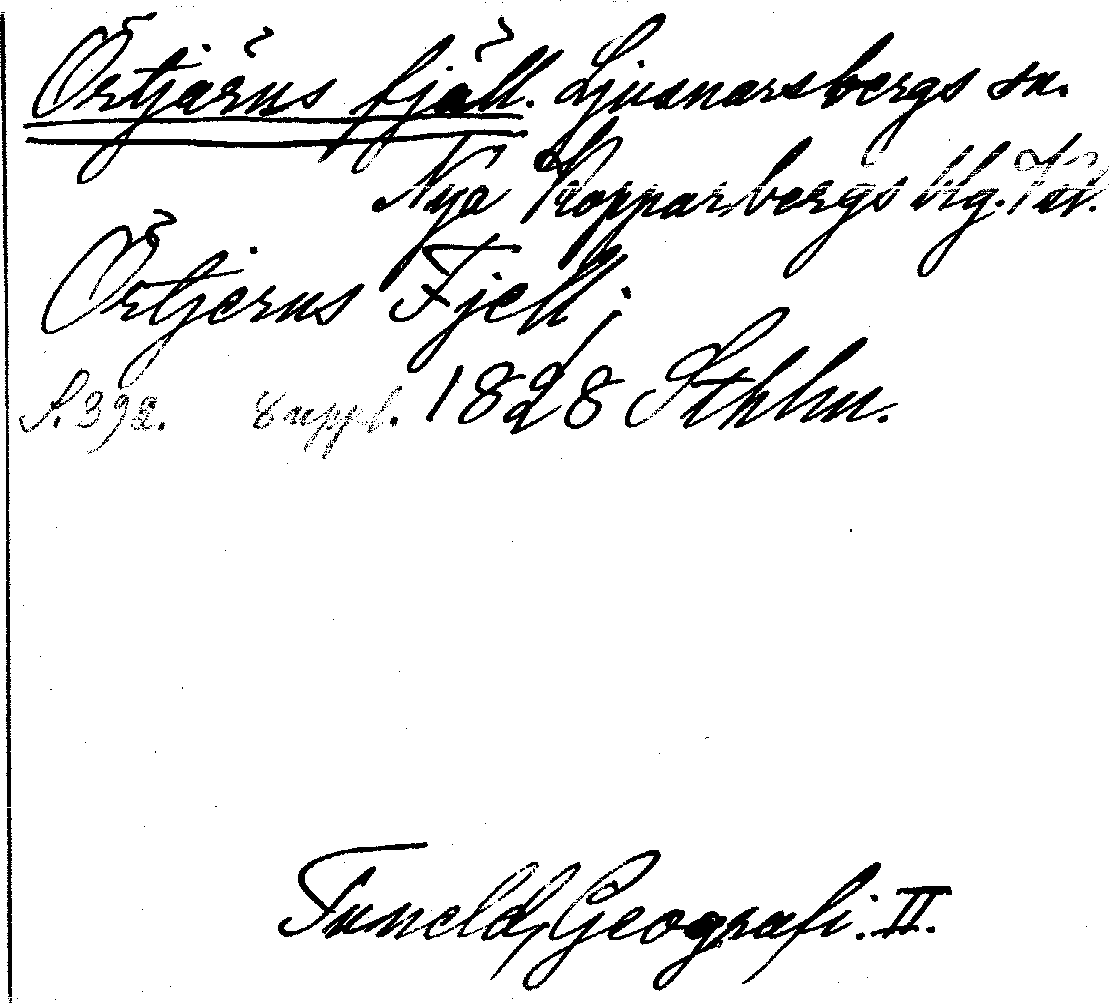 Örtjärns fjäll. Ljusnarsbergs sn.
Nya Kopparbergs blg. Vstl.
Örtjerns Fjell;
S. 392. Suppl. 1828 Sthlm.
Tuneld, Geografi. II.